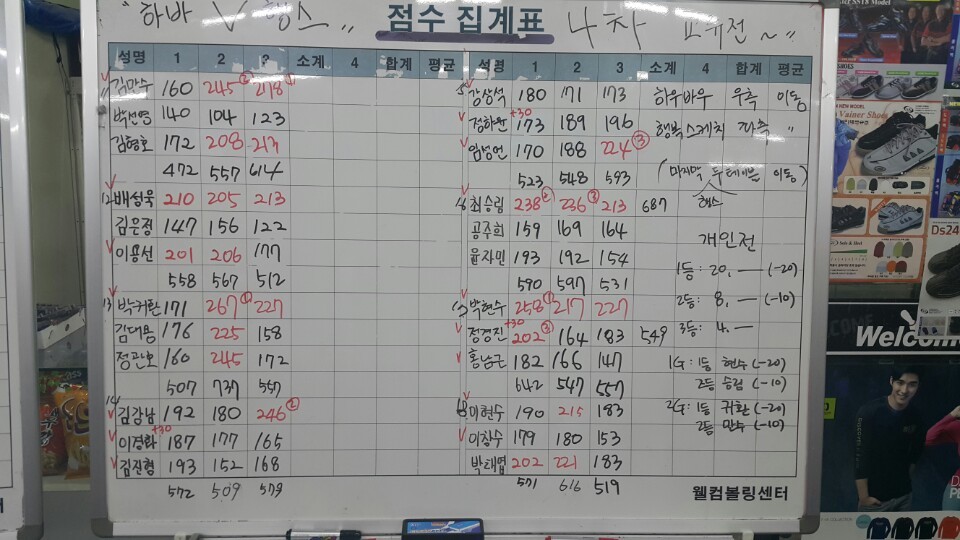 "하바 V 행스" 점수 집계표 4차 교류전~"
성명 1 2 3 소계 4 합계 평균 성명 1 2 3 소계 4 합계 평균
11 김만수 160 245② 278①
박선영 140 104 123
김형호 172 208 213
472 557 614
12 배성욱 210 205 213
김은정 147 156 122
이용선 201 206 177
558 567 512
13 박귀환 171 267① 227
김대용 176 225 158
정관호 160 245 172
507 737 557
14 김강남 192 180 246②
이경화 +30 187 177 165
김진형 193 152 168
572 509 579
15 강상석 180 171 173 하우바우 우측 이동
정하윤 +30 173 189 196 행복스케치 좌측 "
임성언 170 188 224③
523 548 593 (마지막 두 테이블 이동)
행스
16 최승림 238② 236③ 213 687
공주희 159 169 164
윤자민 193 192 154
590 597 531
박현수 258① 217 227
정경진 +30 202③ 164 183 549
홍남근 182 166 147
642 547 557
18 이현수 190 215 183
이창수 179 180 153
박태엽 202 221 183
571 616 519
개인전
1등: 20,— (-20)
2등: 8,— (-10)
3등: 4,—
1G: 1등 현수 (-20)
2등 승림 (-10)
2G: 1등 귀환 (-20)
2등 만수 (-10)
웰컴볼링센터
SS18 Model
NEW MODEL
Vainer Shoes
Ds24
Welcom